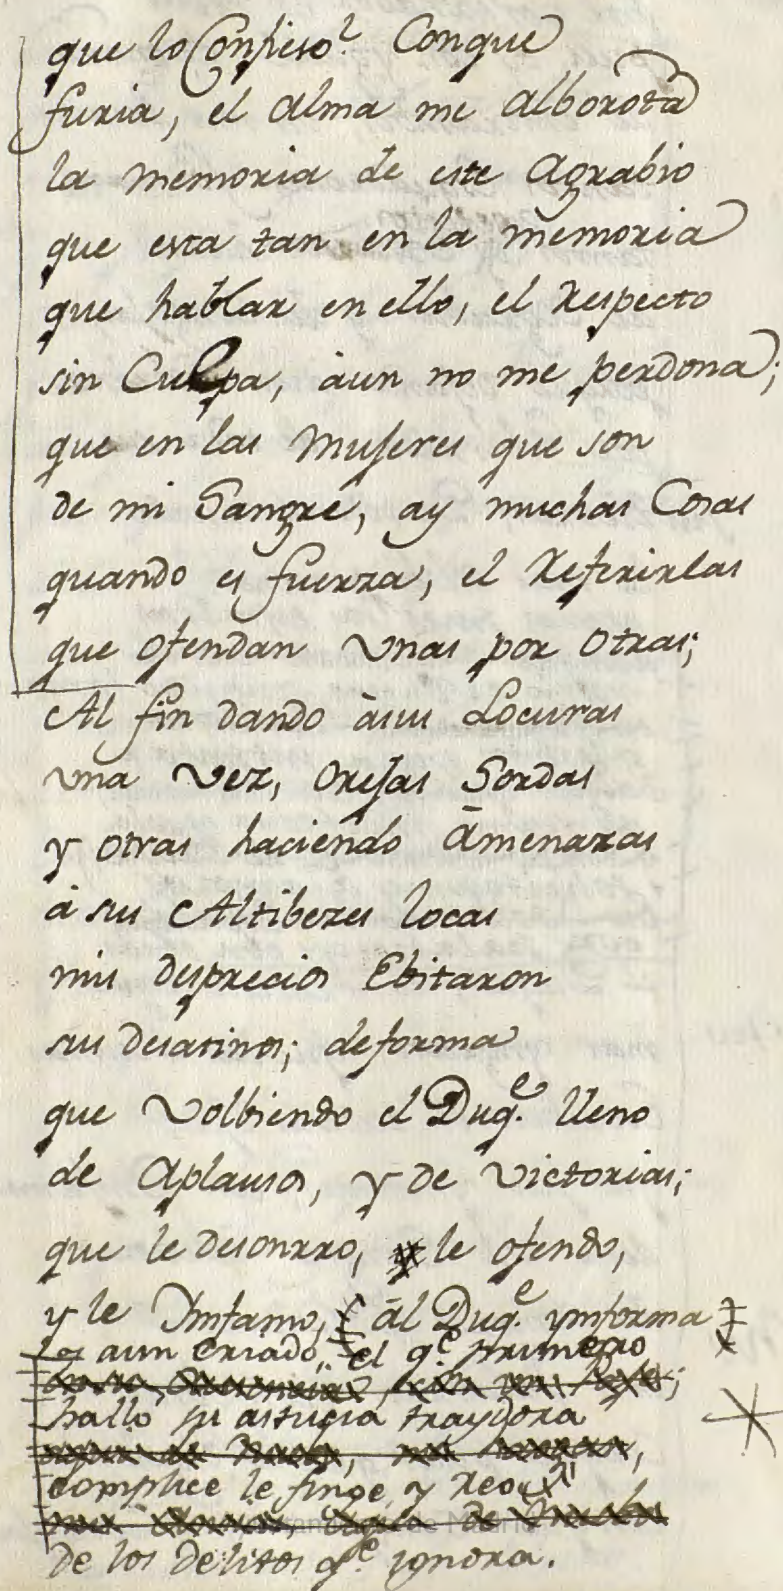 que lo Confieso? Conque
furia, el alma me alborota
la memoria de este Agrabio
que esta tan en la memoria
que hablar en ello, el Respecto
sin Culpa, àun no me perdona;
que en las Mujeres que son
de mi Sangre, ay muchas Cosas
quando es fuerza, el Referirlas
que ofendan Unas por Otras;
Al fin dando àsus Locuras
una vez, Orejas Sordas
y otras haciendo àmenazas
à sus Altibezes locas
mis desprecios Ebitaron
sus desatinos; deforma
que Volbiendo el Duq.e lleno
de Aplausos, y de Victorias;
que le desonrro, le ofendo,
y le Ynfamo, àl Duq.e ynforma
aun Criado, el q.e primero
halló su astucia traydora
complice le finge, y Reo
de los delitos q.e ygnora.